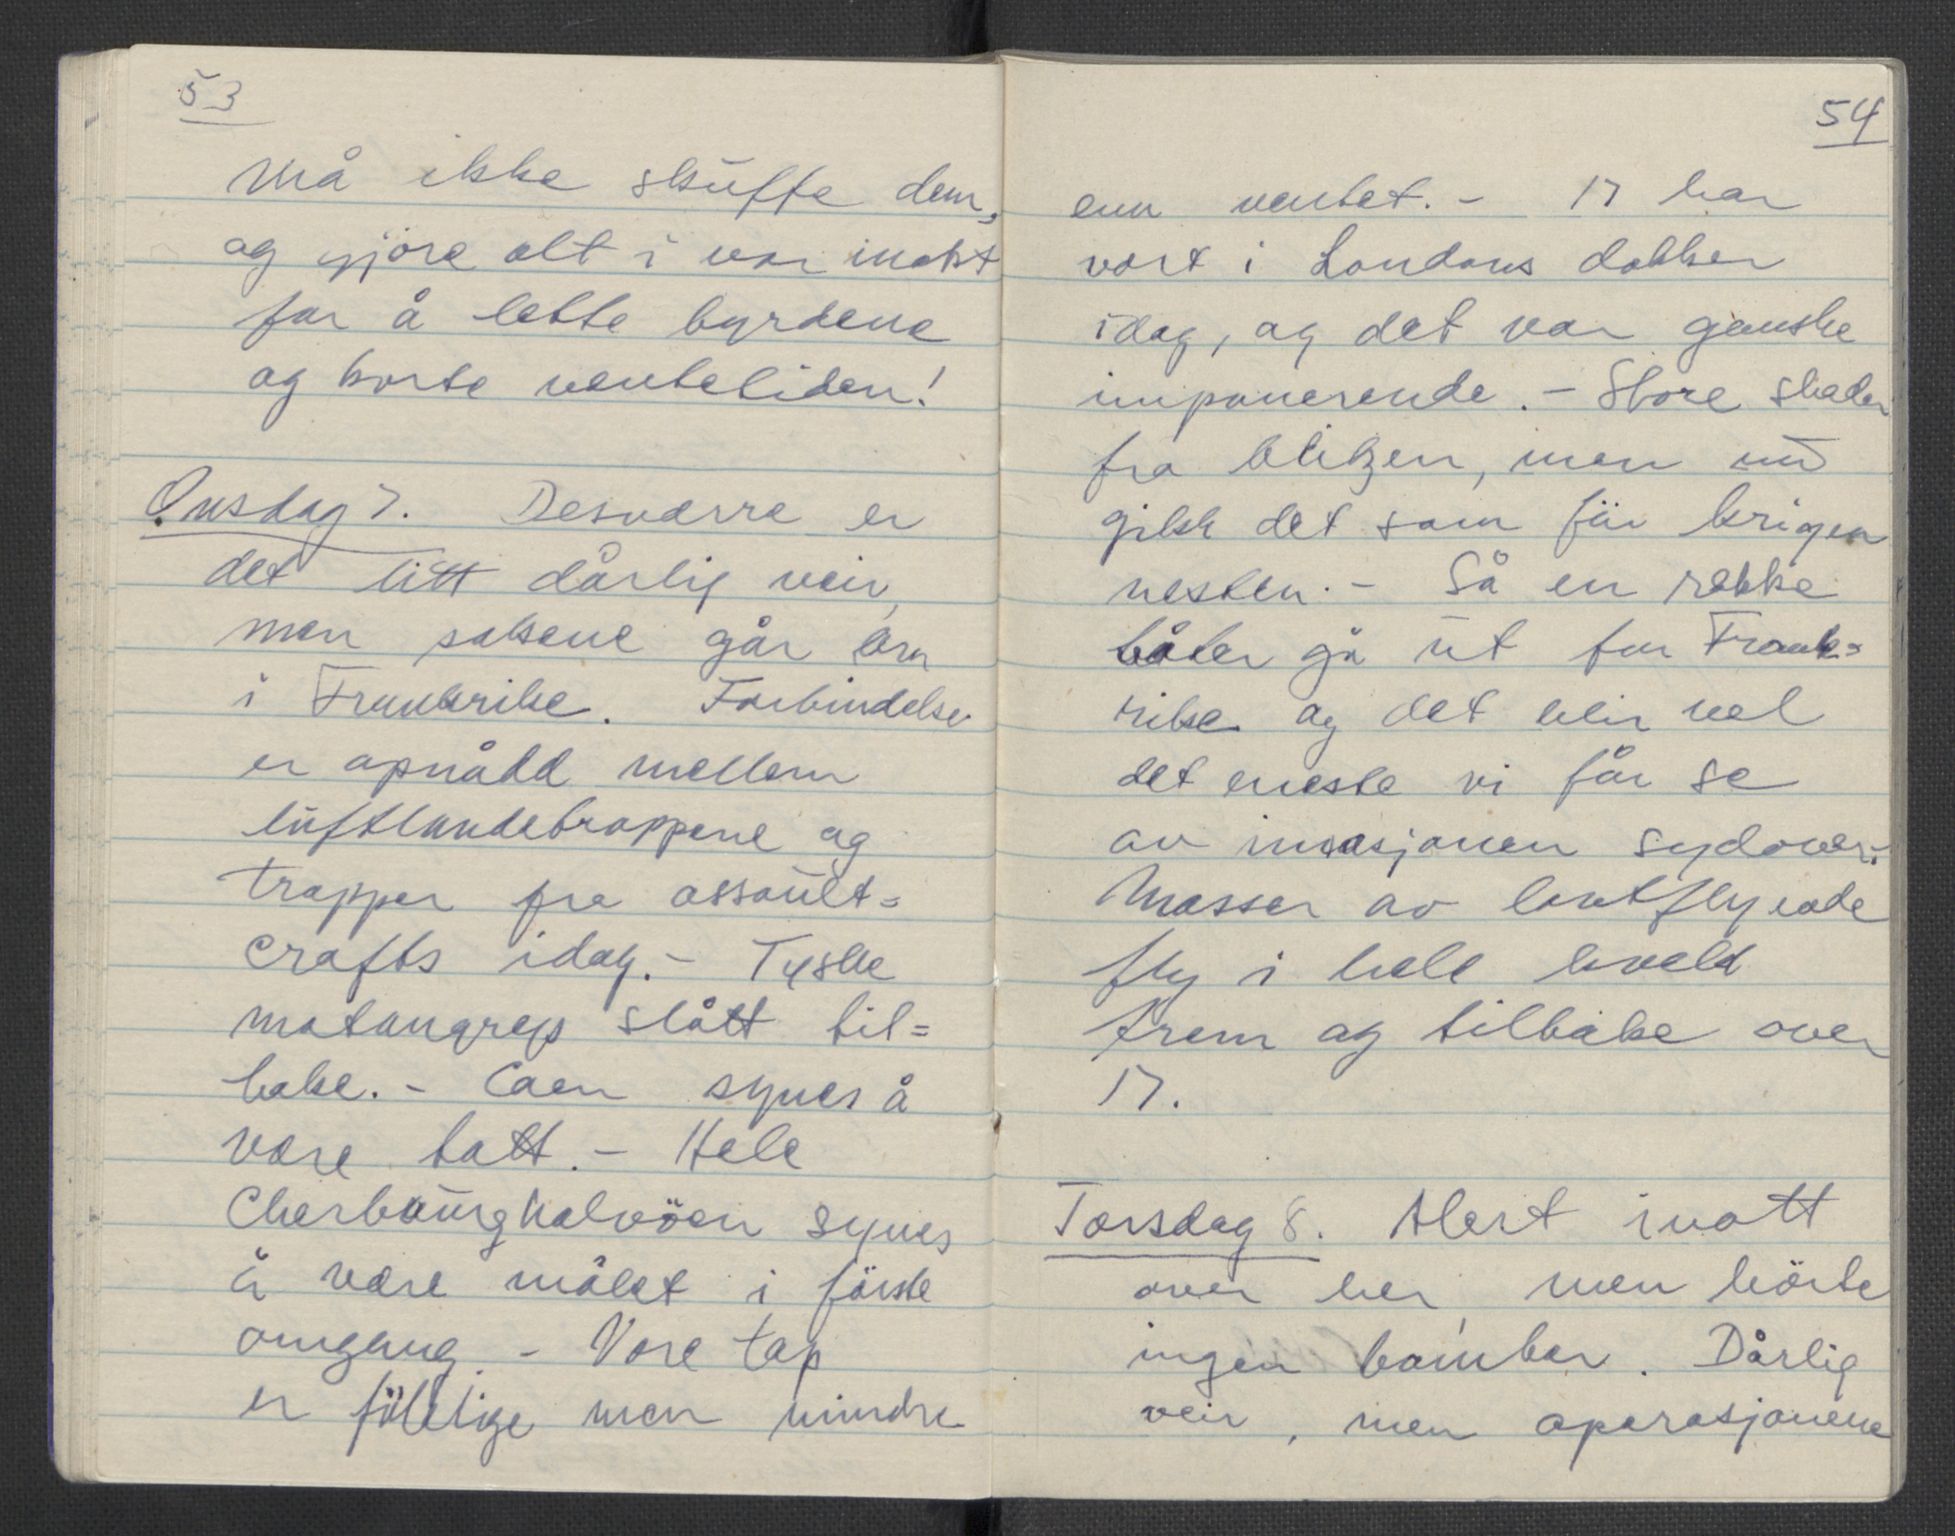 53
må ikke skuffe dem,
og gjöre alt i vor makt
for å lette byrdene
og korte ventetiden!
Onsdag 7. Desværre er
det litt dårlig veir,
men sakene går bra
i Frankrike. Forbindelse
er opnådd mellem
luftlandetroppene og
tropper fra assault=
crafts idag. - Tyske
motangrep slått til=
bake. - Caen synes å
være tatt. - Hele
Cherbourghalvöen synes
å være målet i förste
omgang. - Vore tap
er fölelige men mindre
54
enn ventet. - 17 har
vært i Londons dokker
idag, og det var ganske
imponerende. - Store skader
fra blitzen, men nu
gikk det som för krigen
nesten. - Så en rekke
båter gå ut for Frank=
rike og det blir vel
det eneste vi får se
av invasjonen sydover.
Masser av lavtflyvende
fly i hele kveld
frem og tilbake over
17.
Torsdag 8. Alert inatt
over her, men hörte
ingen bomber. Dårlig
veir, men operasjonene